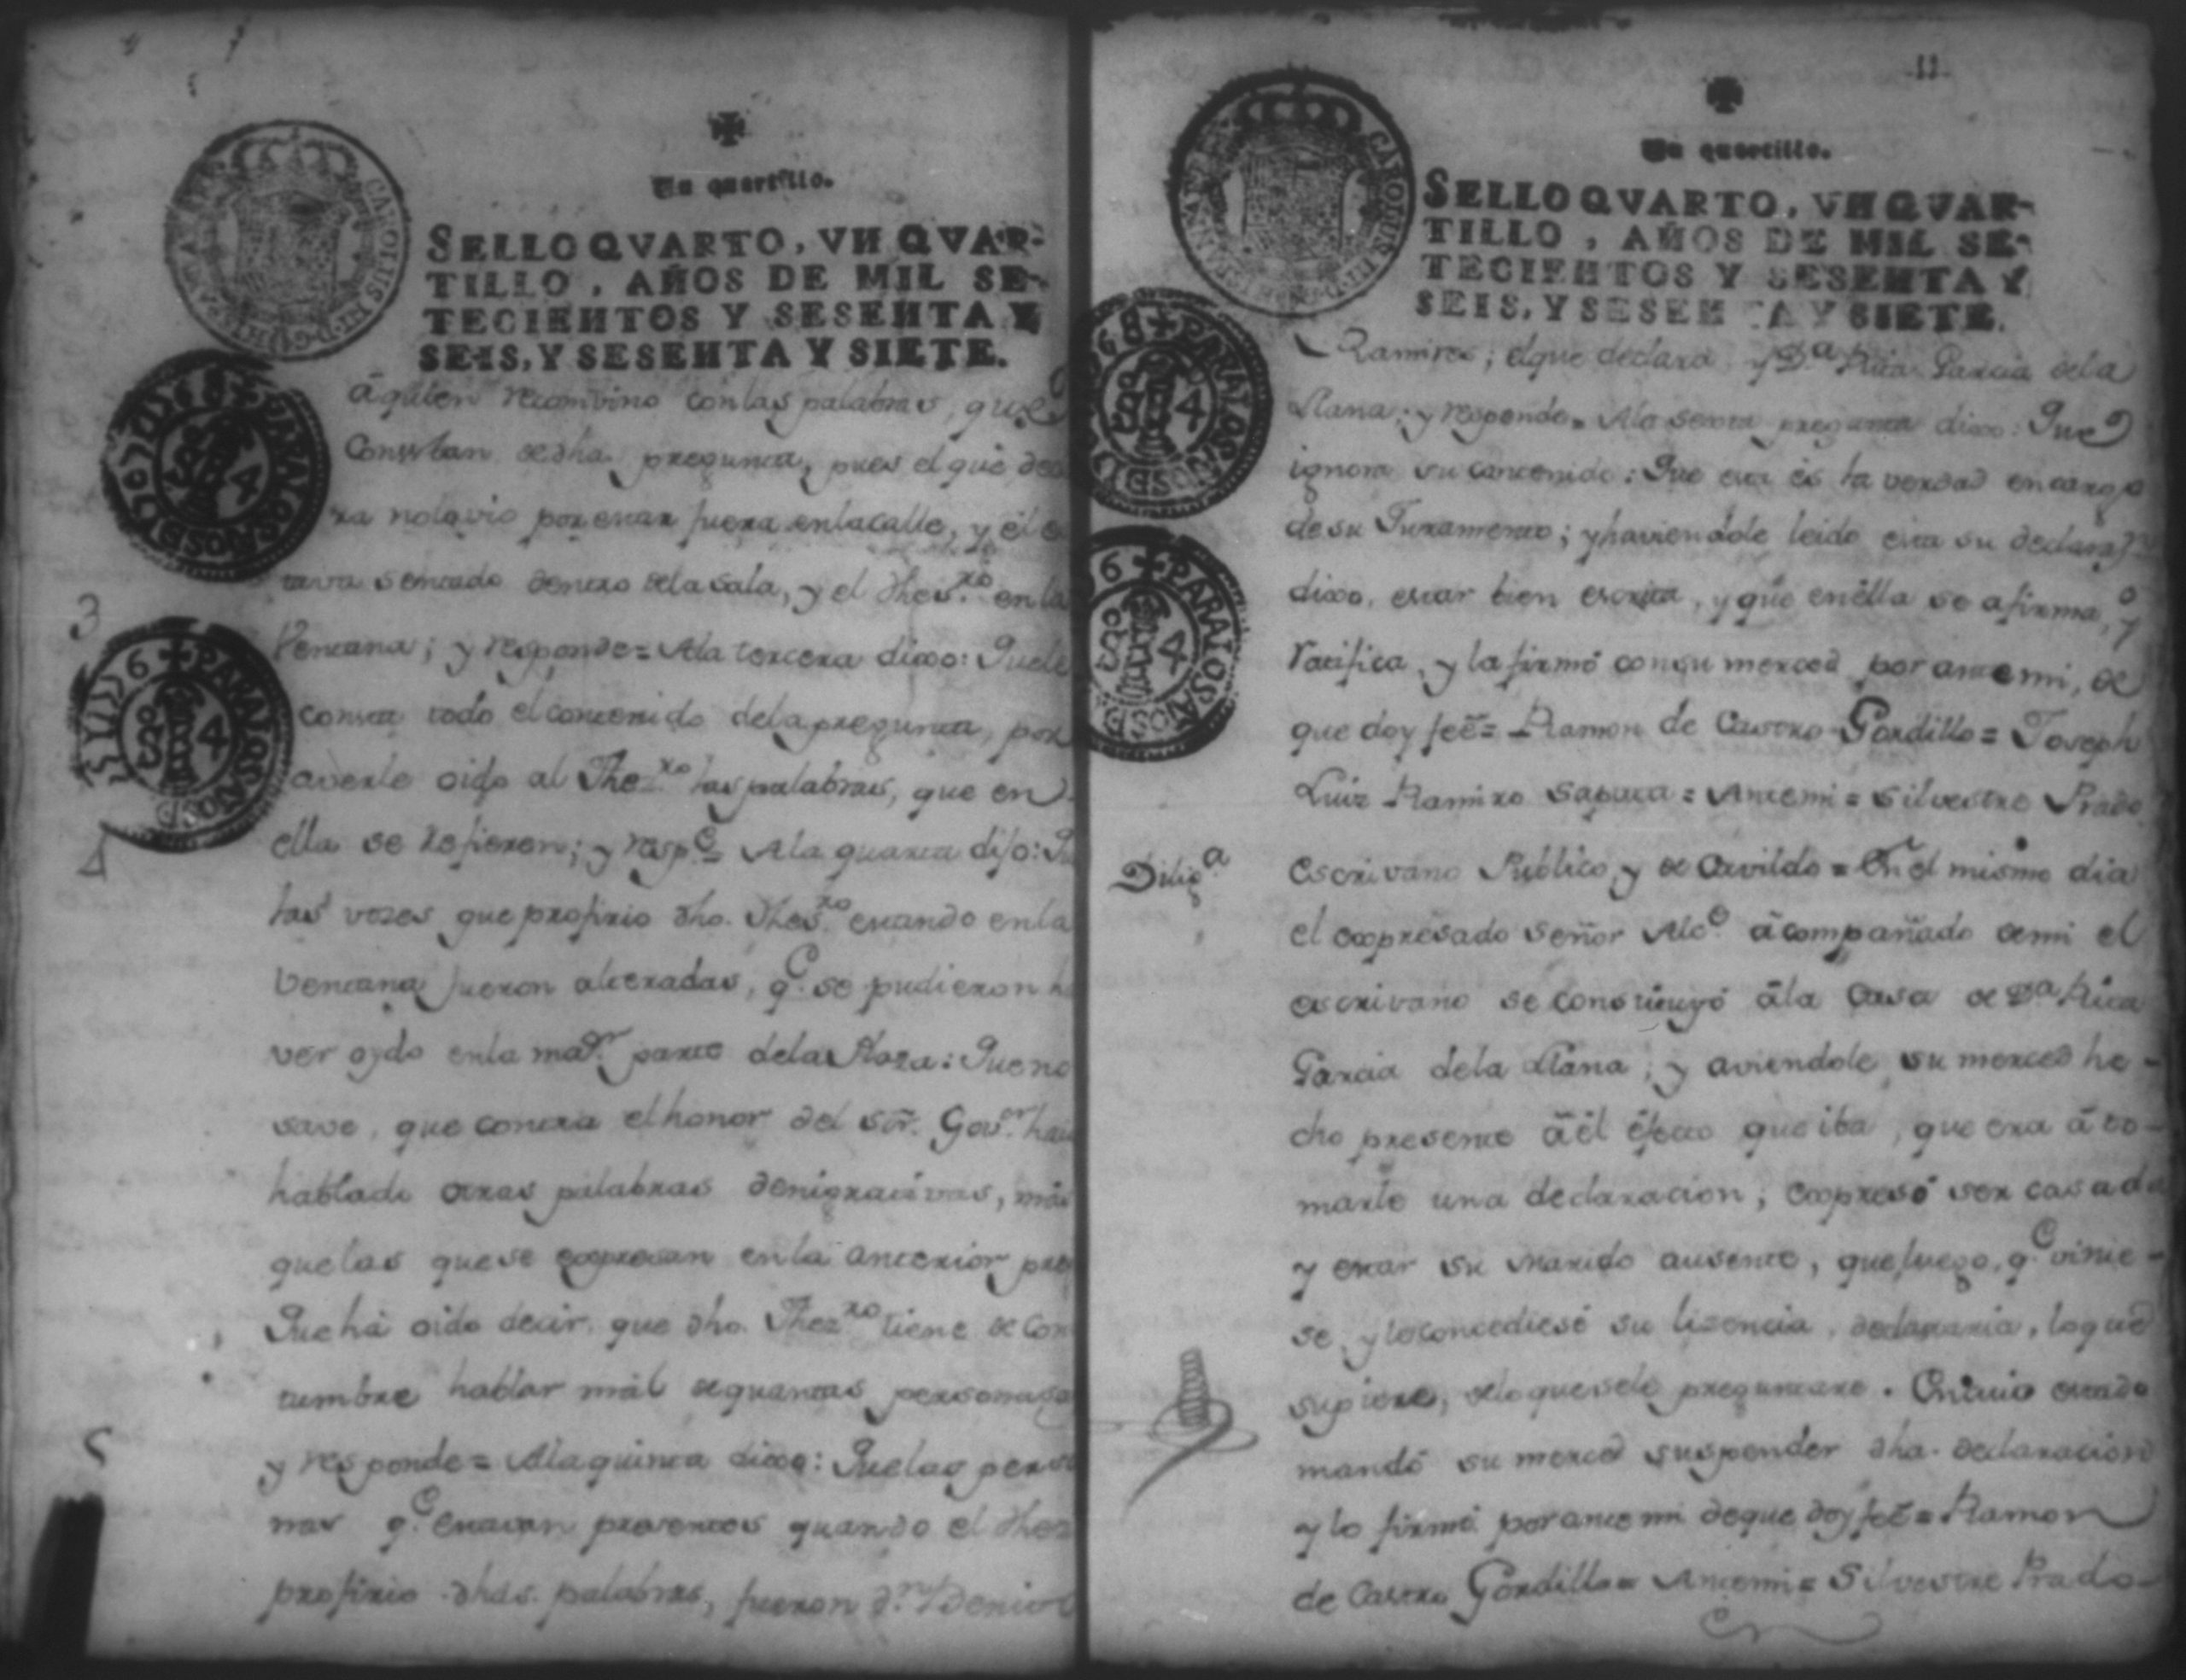 Un quartillo.
SELLO QVARTO, VN QVAR-
TILLO, AÑOS DE MIL SE-
TECIENTOS Y SESENTA Y
SEIS, Y SESENTA Y SIETE.
CAROLUS III D G HISP
PARA LOS AÑOS D 1768
4
PARA LOS AÑOS D 1776
4
á quien recombino con las palabras, que
Constan de dha. pregunta, pues el que
ra no lo vio por estar fuera en la calle, y él
tava sentado dentro de la sala, y el Thes.ro en la
3
Ventana; y responde = A la tercera dixo: Que le
consta todo el contenido de la pregunta, por
averle oido al Thez.ro las palabras, que en
4
ella se refieren; y resp.e = A la quarta dijo:
las vozes que profirio dho. Thes.ro estando en la
Ventana fueron alteradas, q.e se pudieron
ver oydo en la ma.r parte de la Plaza: Que no
save, que contra el honor del Sõr. Gov.or
hablado otras palabras denigrativas, más
que las que se expresan en la anterior
Que há oido decir, que dho. Thez.ro tiene de Cos
tumbre hablar mál de quantas personas
5
y responde = A la quinta dixo: Que las perso
nas q.e estavan presentes quando el Thez
profirio dhas. palabras, fueron d.n
11
Un quartillo.
SELLO QVARTO, VN QVAR-
TILLO, AÑOS DE MIL SE-
TECIENTOS Y SESENTA Y
SEIS, Y SESENTA Y SIETE.
CAROLUS III D G HISP
PARA LOS AÑOS D 1768
4
PARA LOS AÑOS D 1776
4
Ramires; el que declara, y D.a Rita Garcia de la
Llana; y responde = A la sexta pregunta dixo: Que
ignora su contenido: Que esta és la verdad en cargo
de su Juramento; y haviendole leido esta su declaraz.n
dixo, estar bien escrita, y que en élla se afirma, y
ratifica, y la firmó con su merced por ante mi, de
que doy feé = Ramon de Castro Gordillo = Joseph
Luiz Ramiro Sapata = Ante mi = Silvestre Prado
Dilig.a
Escrivano Publico, y de Cavildo = En el mismo dia
el expresado señor Alc.e ácompañado de mi el
escrivano se constituyó á la Casa de D.a Rita
Garcia de la Llana; y aviendole su merced he-
cho presente á él éfecto que iba, que era á to-
marle una declaracion; expresó ser casada
y estar su marido ausente, que luego, q.e vinie-
se, y le concediesé su lizencia, declararia, lo que
supiere, de lo que se le preguntare. En cuio estado
mandó su merced suspender dha. declaracion
y lo firmó por ante mi de que doy feé = Ramon
de Castro Gordillo = Ante mi = Silvestre Prado-